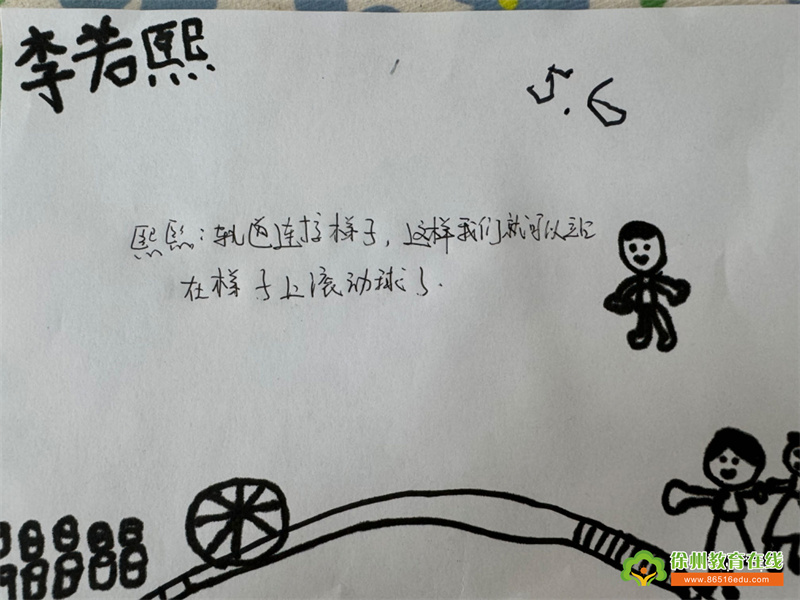 李若熙
5.6
熙熙：轨道连接梯子，这样我们就可以站
在梯子上滚动球了.
徐州教育在线
www.86516edu.com